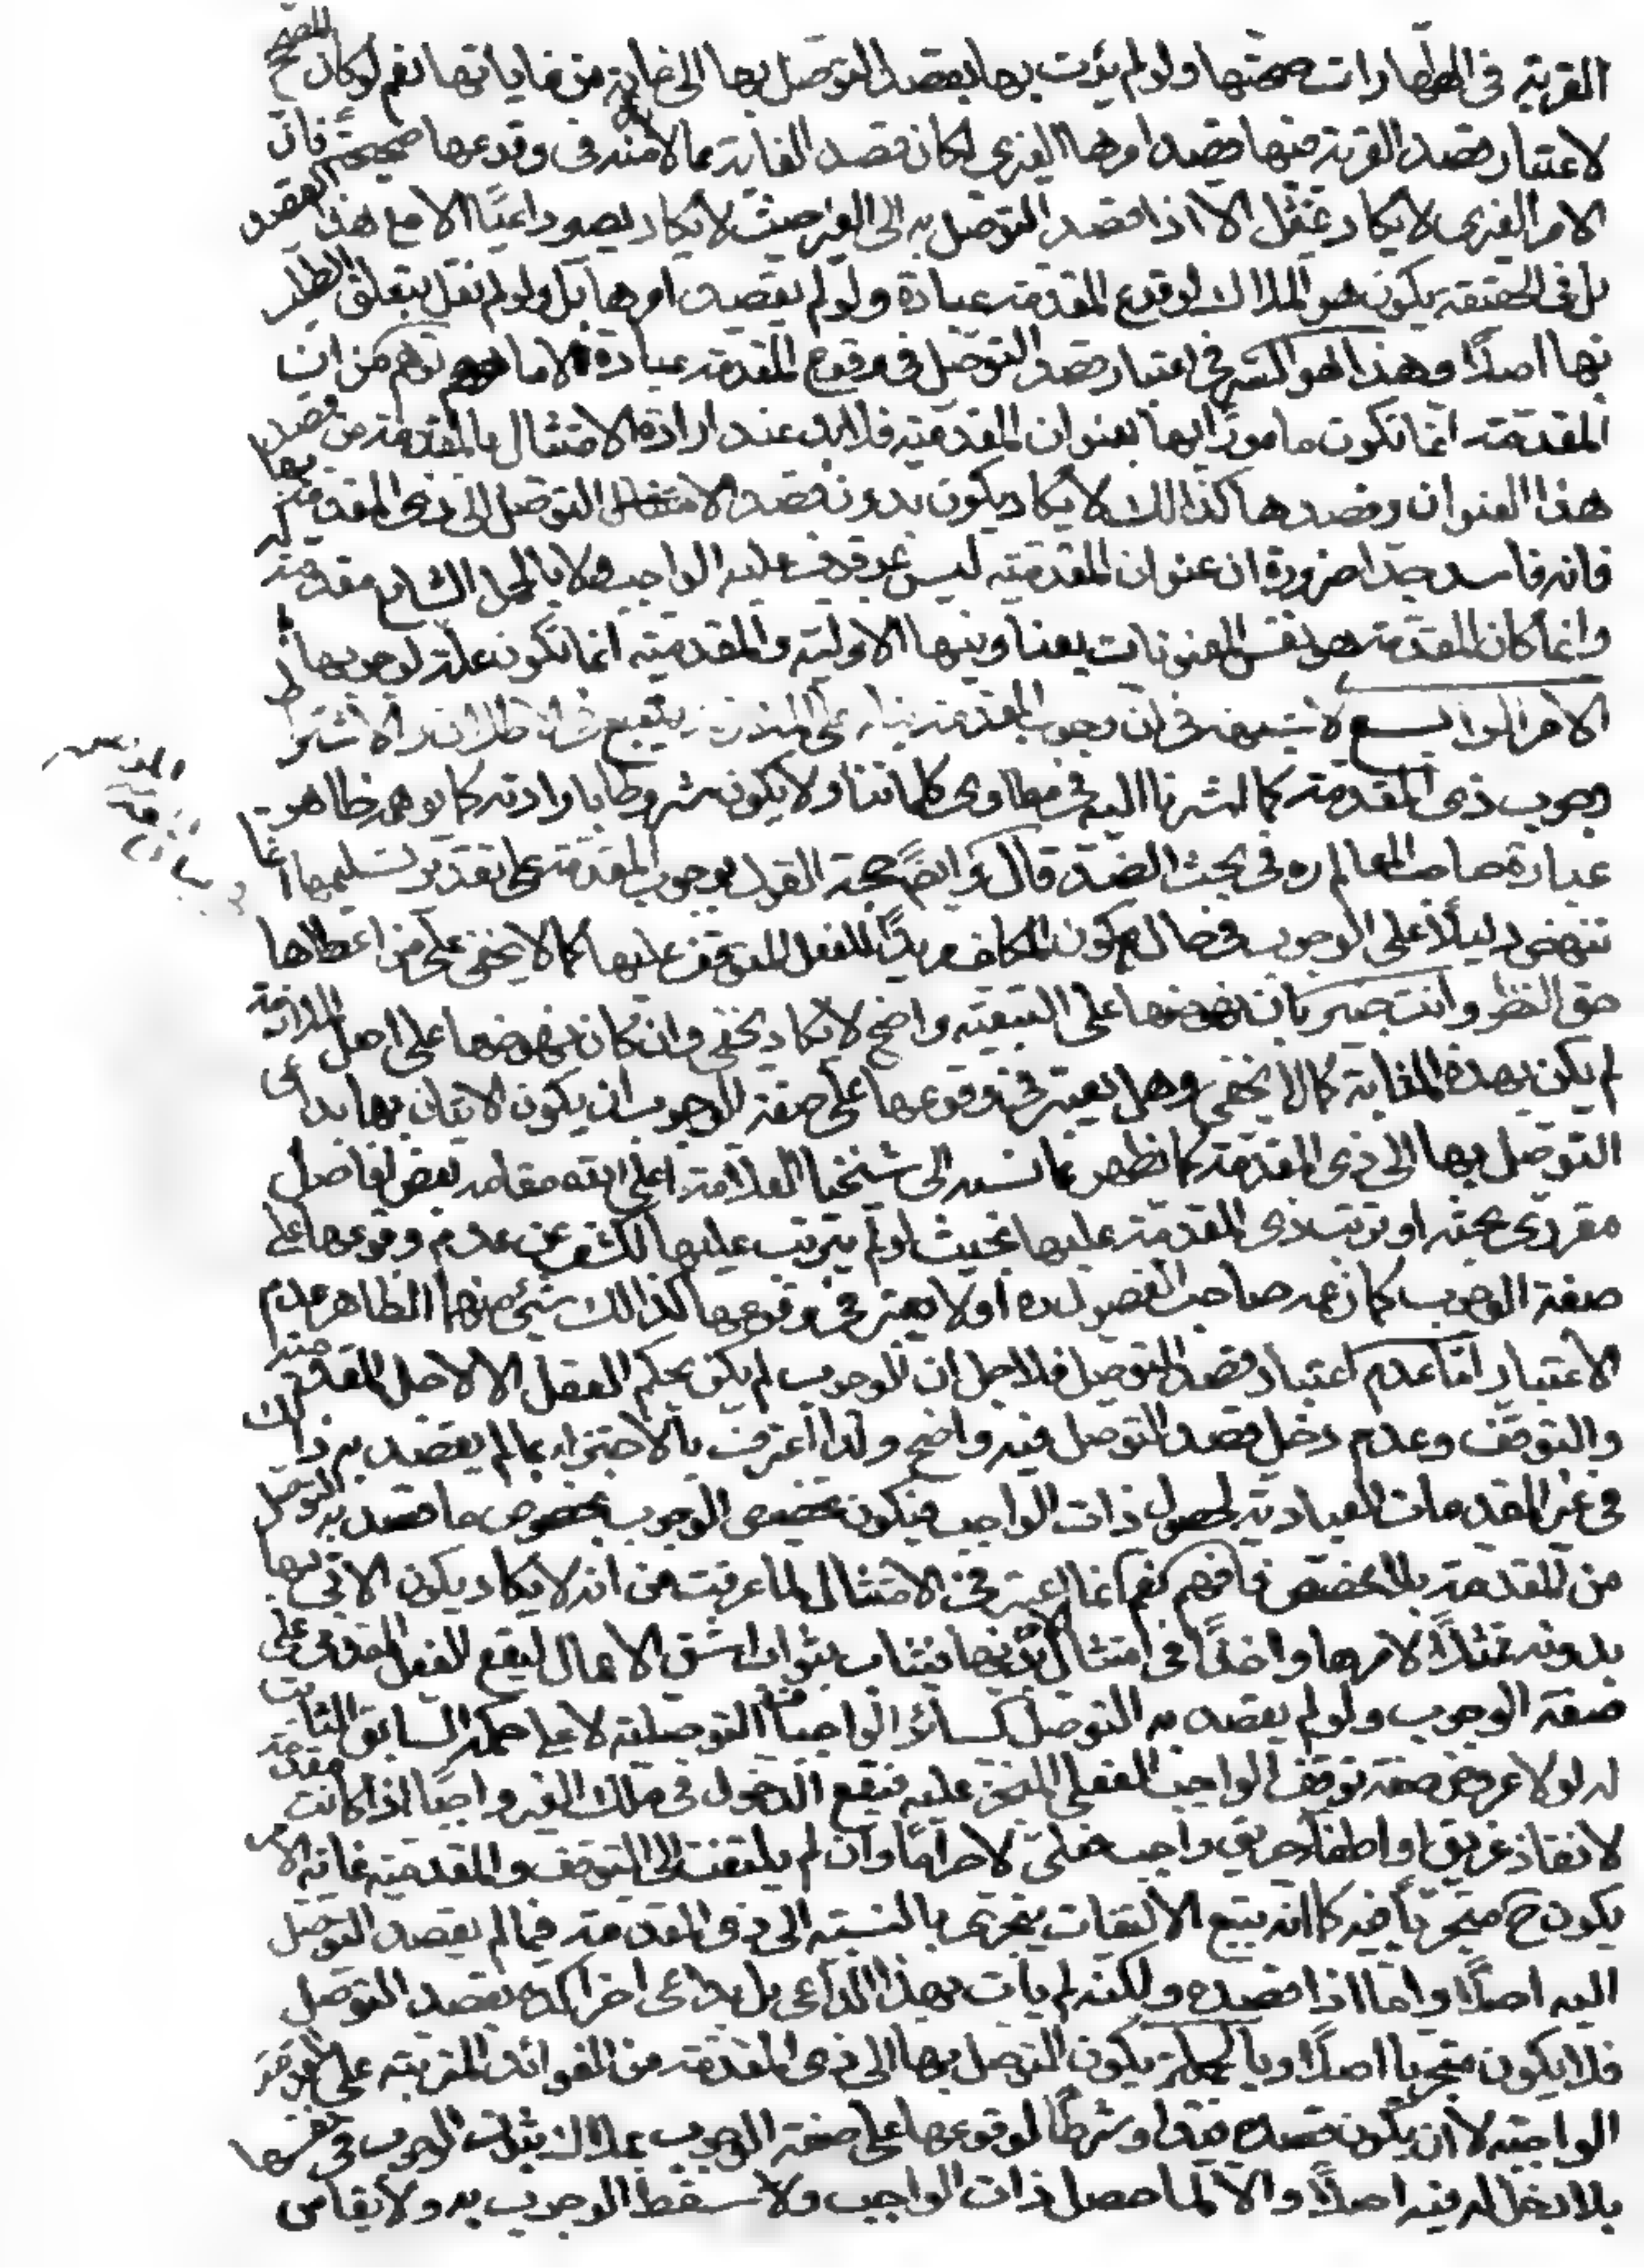 القربة فى الطهارات صحتها ولو لم يؤت بها بقصد التوصل بها الى غاية من غاياتها نعم لو كان المصحح
لاعتبار قصد القربة فيها قصد امرها الغيرى لكان قصد الغاية مما لا بد منه فى وقوعها صحيحة فان
الامر الغيرى لا يكاد يمتثل الا اذا قصد التوصل به الى الغير حيث لا يكاد يصير داعيًا الا مع هذا القصد
بل فى الحقيقة يكون هو الملاك لوقوع المقدمة عبادة ولو لم يقصد امرها بل ولو لم نقل بتعلق الطلب
بها اصلًا وهذا هو السر فى اعتبار قصد التوصل فى وقوع المقدمة عبادة لا ما توهم من ان
المقدمة انما تكون مامورًا بها بعنوان المقدمية فلا بد عند ارادة الامتثال بالمقدمة من قصد
هذا العنوان وقصدها كذالك لا يكاد يكون بدون قصد التوصل الى ذى المقدمة بها
فانه فاسد جدا ضرورة ان عنوان المقدمية ليس بموقوف عليه الواجب ولا بالحمل الشايع مقدمة له
وانما كان المقدمة هو نفس المعنونات بعناوينها الاولية والمقدمية انما تكون علة لوجوبها
الامر الرابع لا شبهة فى ان وجوب المقدمة بناء على الملازمة يتبع فى الاطلاق والاشتراط
وجوب ذى المقدمة كما اشرنا اليه فى مطاوى كلماتنا ولا يكون مشروطا بارادته كما يوهمه ظاهر
عبارة صاحب المعالم ره فى بحث الضد قال وايضًا حجة القول بوجوب المقدمة على تقدير تسليمها انما
تنهض دليلًا على الوجوب فى حال كون المكلف مريدًا للفعل المتوقف عليها كما لا يخفى على من اعطاها
حق النظر وانت خبير بان نهوضها على التبعية واضح لا يكاد يخفى وان كان نهوضها على اصل الملازمة
لم يكن بهذه المثابة كما لا يخفى وهل يعتبر فى وقوعها على صفة الوجوب ان يكون الاتيان بها بداعى
التوصل بها الى ذى المقدمة كما يظهر مما نسبه الى شيخنا العلامة اعلى الله مقامه بعض افاضل
مقررى بحثه او ترتب ذى المقدمة عليها بحيث لو لم يترتب عليها لكشف عن عدم وقوعها على
صفة الوجوب كما زعمه صاحب الفصول ره او لا يعتبر فى وقوعها كذالك شئ منهما الظاهر عدم
الاعتبار اما عدم اعتبار قصد التوصل فلاجل ان الوجوب لم يكن بحكم العقل الا لاجل المقدمية
والتوقف وعدم دخل قصد التوصل فيه واضح ولذا اعترف بالاجتزاء بما لم يقصد به ذالك
فى غير المقدمات العبادية لحصول ذات الواجب فيكون تخصيص الوجوب بخصوص ما قصد به التوصل
من المقدمة بلا مخصص فافهم نعم انما اعتبر فى الامتثال لما عرفت من انه لا يكاد يكون الاتى بها
بدونه ممتثلًا لامرها واخذًا فى امتثال الامر بذيها فيثاب بثواب اشق الاعمال ليقع الفعل المقدمى على
صفة الوجوب ولو لم يقصد به التوصل كسائر الواجبات التوصلية لا على حكمه السابق الثابت
له لولا عروض صفة توقف الواجب الفعلى المنجز عليه فيقع الدخول فى ملك الغير واجبًا اذا كانت مقدمة
لانقاذ غريق او اطفاء حريق واجب فعلى لا حرامًا وان لم يلتفت الى التوقف والمقدمية غاية الامر
يكون ح متجريًا فيه كما انه يتبع الالتفات يتجرى بالنسبة الى ذى المقدمة فيما لم يقصد التوصل
اليه اصلًا واما اذا قصده ولكنه لم يات بهذا الداعى بل بداعى اخر اكده بقصد التوصل
فلا يكون متجريا اصلًا وبالجملة يكون التوصل بها الى ذى المقدمة من الفوائد المترتبة على المقدمة
الواجبة لا ان يكون قصده قيدًا وشرطًا لوقوعها على صفة الوجوب لملاك ثبوت الوجوب فى نفسها
بلا دخل له فيه اصلًا والا لما حصل ذات الواجب ولا سقط الوجوب به ولا يقاس